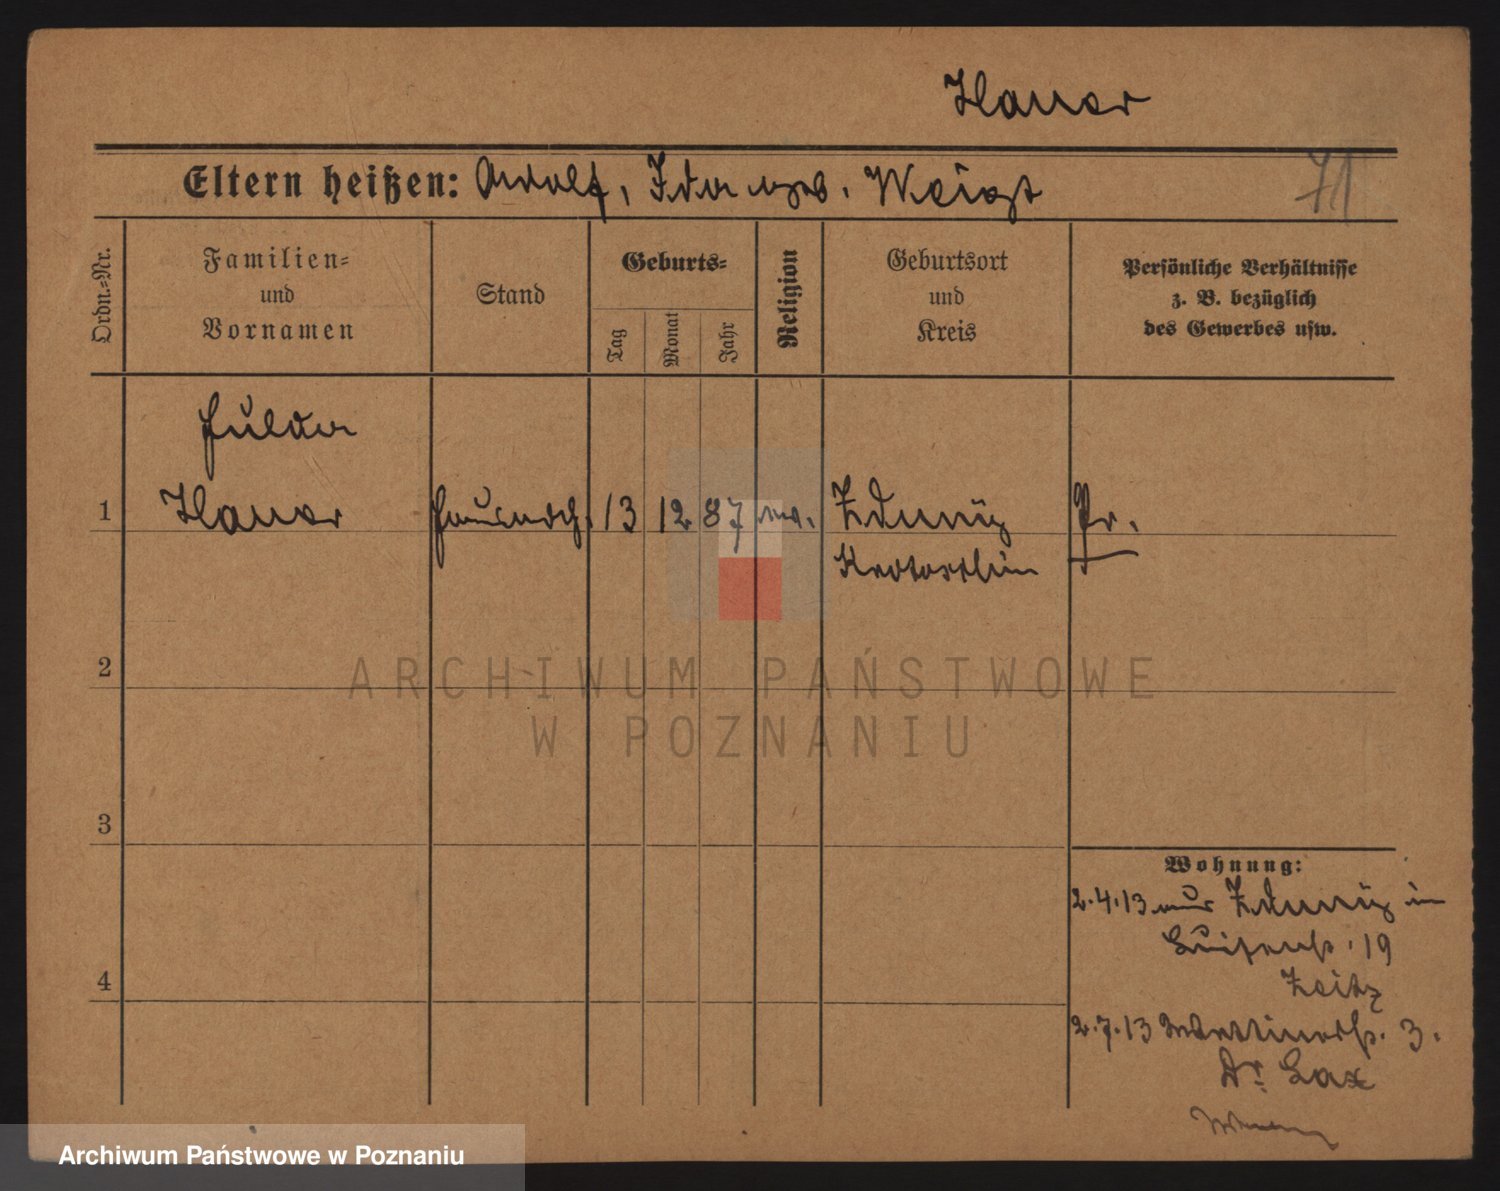 Hauer
Eltern heißen: Adolf, Ida geb. Weigt
71
Ordn.-Nr.
Familien-
und
Vornamen
Stand
Geburts-
Tag
Monat
Jahr
Religion
Geburtsort
und
Kreis
Persönliche Verhältnisse
z. B. bezüglich
des Gewerbes usw.
Hulda
1 Hauer 13 12 87 ev. Zduny Pr.
Krotoschin
2
ARCHIWUM PAŃSTWOWE
W POZNANIU
3
Wohnung:
2.4.13 aus Zduny in
Luisenstr. 19
Zeitz
4
2.7.13 3.
Dr. Lax
Archiwum Państwowe w Poznaniu